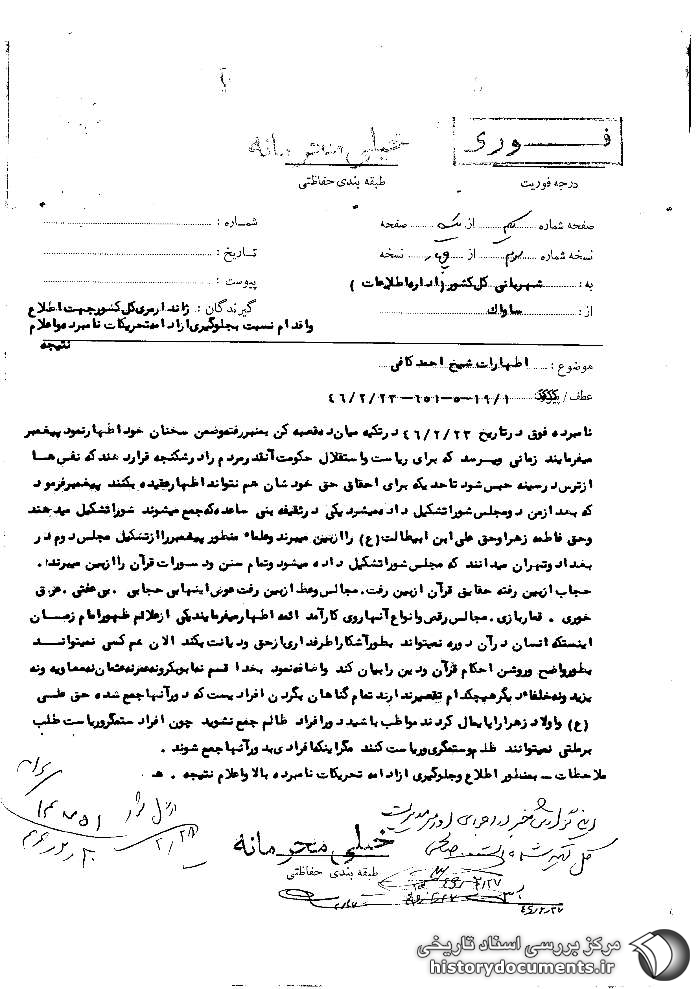 فوری
خیلی محرمانه
درجه فوریت
طبقه بندی حفاظتی
صفحه شماره یکم از یک صفحه
شماره :
نسخه شماره سوم از چهار نسخه
تاریخ :
به : شهربانی کل کشور (اداره اطلاعات )
پیوست :
از : ساواک
گیرندگان : ژاندارمری کل کشور جهت اطلاع
واقدام نسبت بجلوگیری ازادامه تحریکات نامبرده واعلام
نتیجه
موضوع : اظهارات شیخ احمد کافی
عطف/ ۱۹/۱-۵-۶۵۱-۴۶/۲/۲۳
نامبرده فوق درتاریخ ۴۶/۲/۲۳ درتکیه میان ده قصبه کن بمنبررفته وضمن سخنان خود اظهارنمود پیغمبر
میفرمایند زمانی میرسد که برای ریاست واستقلال حکومت آنقدرمردم رادرشکنجه قرارد هند که نفس ها
ازترس درسینه حبس شود تاحدیکه برای احقاق حق خودشان هم نتوانند اظهارعقیده بکنند پیغمبرفرمود
که بعد ازمن دومجلس شوراتشکیل داده میشود یکی درثقیفه بنی ساعده که جمع میشوند شوراتشکیل میدهند
وحق فاطمه زهراوحق علی ابن ابیطالب (ع) راازبین میبرند وعلماء منظور پیغمبرراازتشکیل مجلس دوم در
بغداد وتهران میدانند که مجلس شوراتشکیل داده میشود وتمام سنن ودستورات قرآن راازبین میبرند .
حجاب ازبین رفته حقایق قرآن ازبین رفت . مجالس وعظ ازبین رفت عوض اینهابی حجابی . بی عفتی . عرق
خوری . قماربازی . مجالس رقص وانواع آنهاروی کارآمد ائمه اطهارمیفرمایند یکی ازعلائم ظهورامام زمان
اینستکه انسان درآن دوره نمیتواند بطورآشکاراطرفداری ازحق ودیانت بکند الان هم کسی نمیتوانـد
بطورواضح وروشن احکام قرآن ودین رابیان کند واضافه نمود بخدا قسم نه ابوبکرونه عمرنه عثمان نه معاویه ونه
یزید ونه خلفاء دیگرهیچکدام تقصیرندارند تمام گناهان بگردن افرادیست که دورآنهاجمع شده حق علی
(ع) واولاد زهراراپایمال کردند مواظب باشید دورافراد ظالم جمع نشوید چون افراد ستمگروریاست طلب
برملتی نمیتوانند ظلم وستمگری وریاست کنند مگراینکه افرادی بدورآنهاجمع شوند .
ملاحظات – بمنظور اطلاع وجلوگیری ازادامه تحریکات نامبرده بالا واعلام نتیجه . هـ
خیلی محرمانه
طبقه بندی حفاظتی
۴۶/۲/۲۷
مرکز بررسی اسناد تاریخی
historydocuments.ir